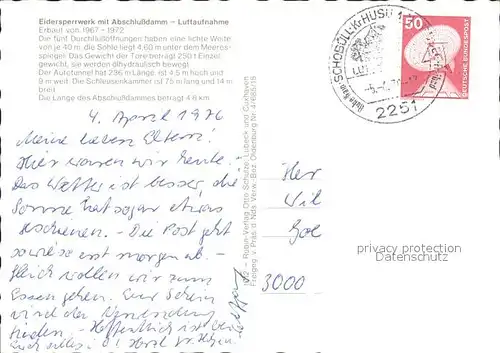 Eidersperrwerk mit Abschlußdamm – Luftaufnahme
Erbaut von 1967 – 1972
Die fünf Durchflußöffnungen haben eine lichte Weite
von je 40 m, die Sohle liegt 4,60 m unter dem Meeres-
spiegel. Das Gewicht der Tore beträgt 250 t. Einzel
gewicht, sie werden ölhydraulisch bewegt.
Der Autotunnel hat 236 m Länge, ist 4,5 m hoch und
9 m weit. Die Schleusenkammer ist 75 m lang und 14 m
breit.
Die Länge des Abschlußdammes beträgt 4,8 km
4. April 1976
Meine lieben Eltern!
Hier waren wir heute. -
Das Wetter ist besser, die
Sonne hat sogar etwas
geschienen. - Die Post geht
sowieso erst morgen ab. -
Gleich wollen wir zum
Essen gehen. Euer Schein
wird der Verwendung
finden. - Hoffentlich ist
Euch alles
Rubin-Verlag Otto Schütze, Lübeck und Cuxhaven
Freigeg. v. Präs. d. Nds. Verw. Bez. Oldenburg Nr. 4/665/15
SCHOBÜLL-KR-HUSUM
2251
50
DEUTSCHE BUNDESPOST
Her
Wil
3000
privacy protection
Datenschutz